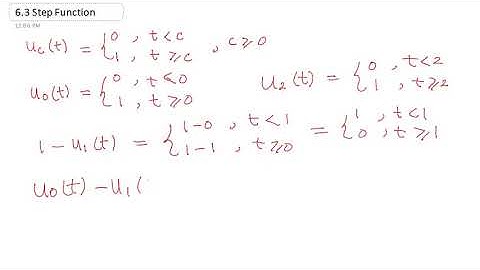 6.3 Step Function
12:06 PM
u_c(t) = { 0 , t < c ; 1 , t ⩾ c , c ⩾ 0
u_0(t) = { 0 , t < 0 ; 1 , t ⩾ 0    u_2(t) = { 0 , t < 2 ; 1 , t ⩾ 2
1 - u_1(t) = { 1-0 , t < 1 ; 1-1 , t ⩾ 0 = { 1 , t < 1 ; 0 , t ⩾ 1
u_0(t) - u_1(